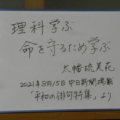 理科学ぶ
命を守るため学ぶ
大幡琉美花
2021年8月15日 中日新聞掲載
「平和の俳句特集」より